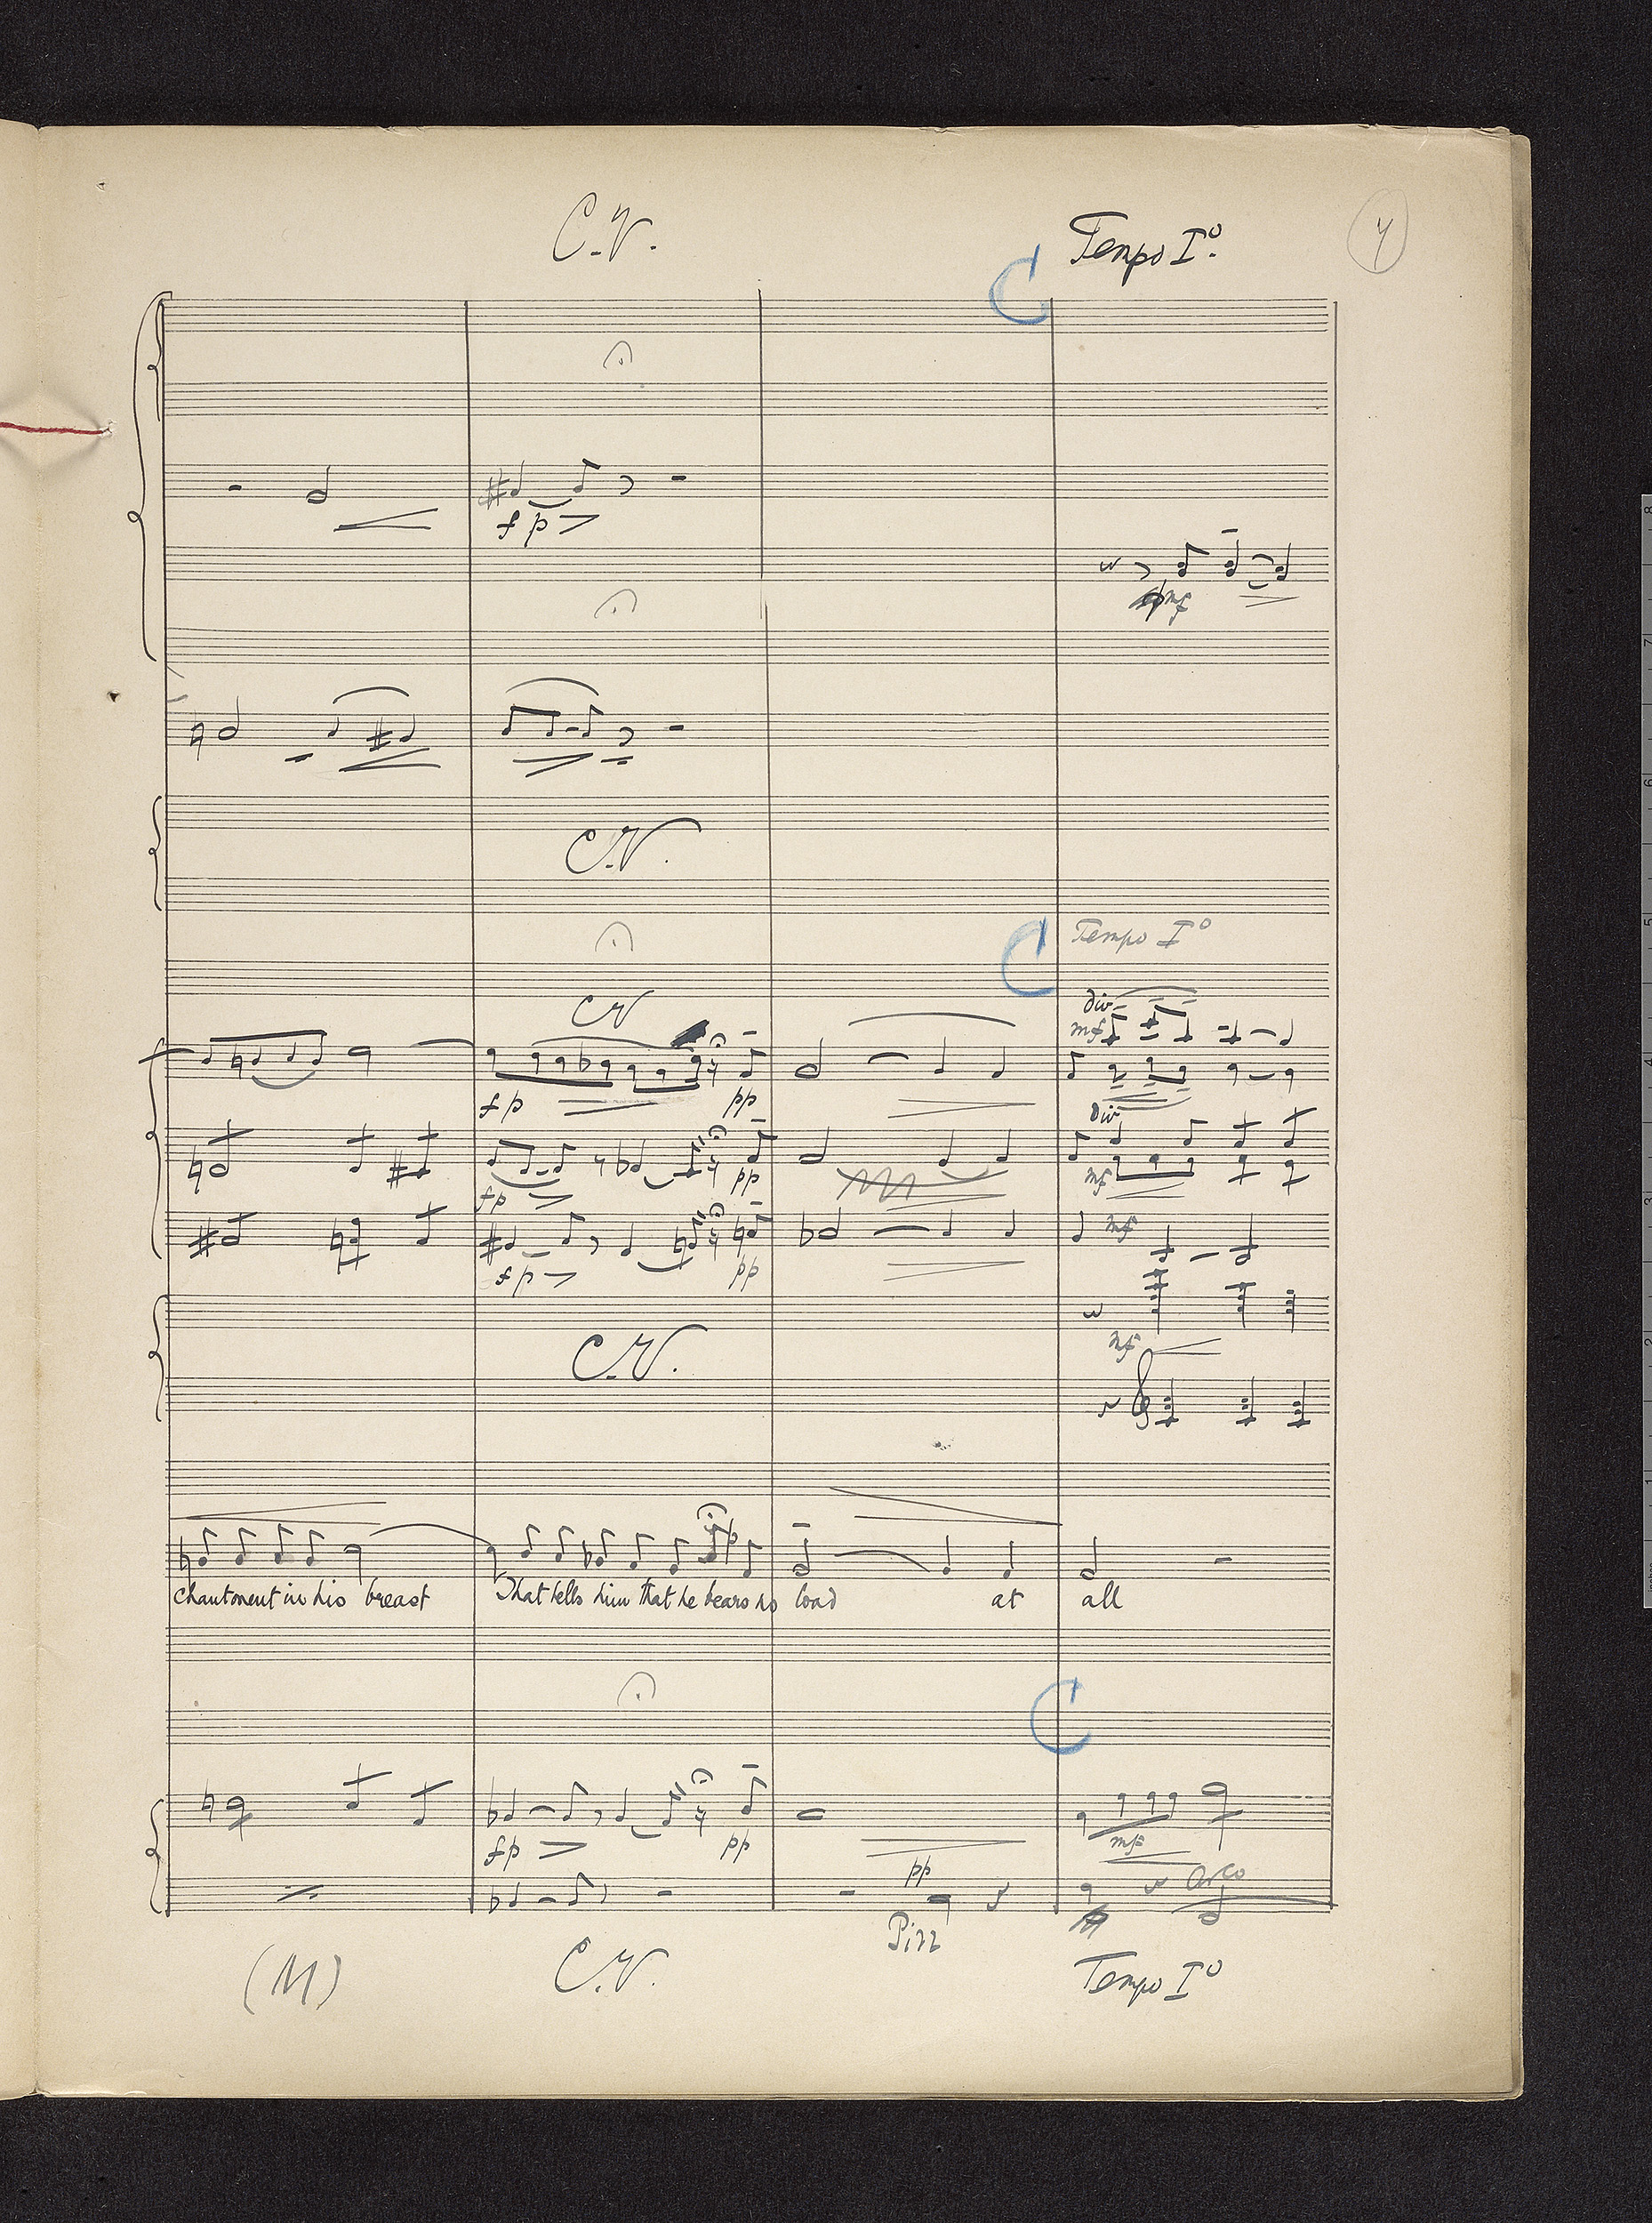 C.V.
Tempo Iº.
C
fp
mf
C.V.
C
Tempo Iº
CV
div
mf
fp
pp
div
fp
pp
mf
fp
pp
mf
C.V.
mf
p
chantment in his breast That tells him that he bears no load at all
C
fp
pp
mf
pp
arco
Pizz
(M)
C.V.
Tempo Iº